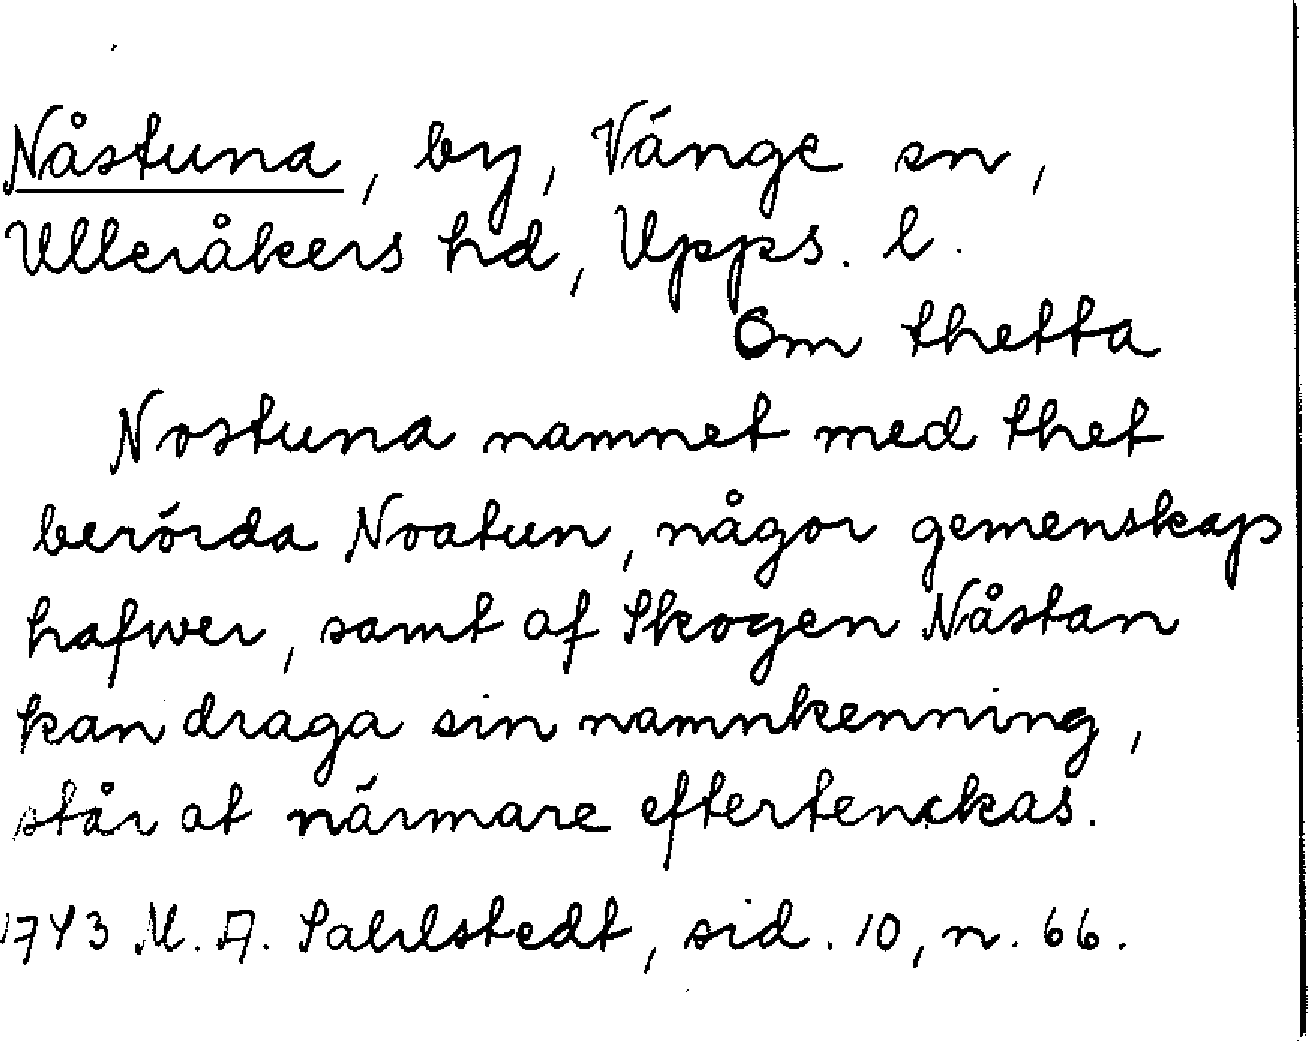 Nåstuna, by, Vänge sn,
Ulleråkers hd, Upps. l.
Om thetta
Nostuna namnet med thet
berörda Noatun, någor gemenskap
hafwer, samt af Skogen Nåstan
kan draga sin namnkenning,
står at närmare eftertenckas.
1743 M. A. Sahlstedt, sid. 10, n. 66.